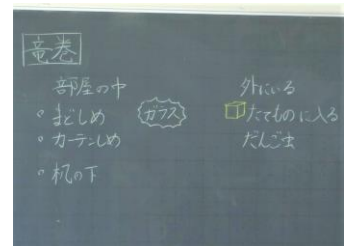 竜巻
部屋の中
。まどしめ
。カーテンしめ
。机の下
ガラス
外にいる
たてものに入る
だんご虫